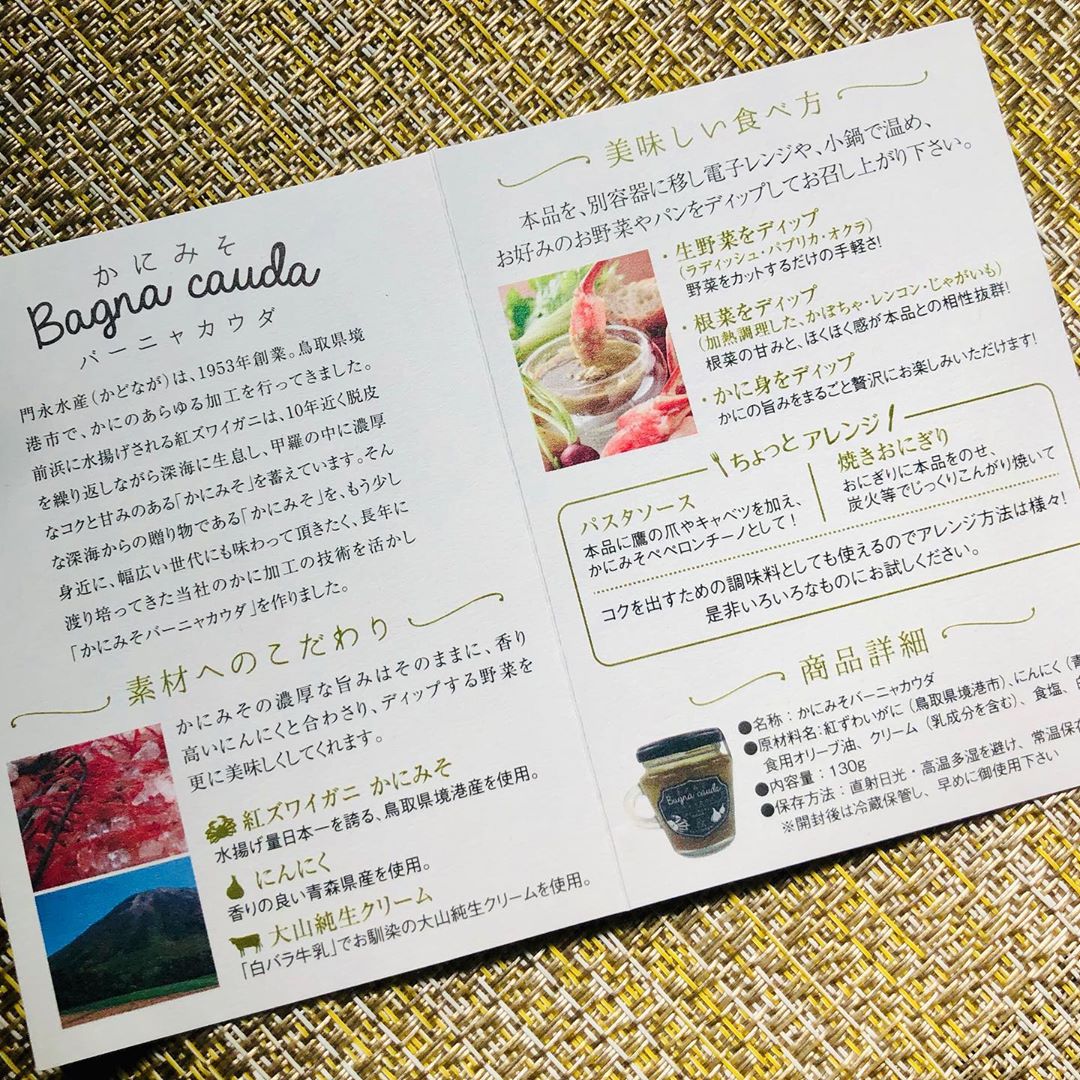 かにみそ
Bagna cauda
バーニャカウダ
門永水産(かどなが)は、1953年創業。鳥取県境
港市で、かにのあらゆる加工を行ってきました。
前浜に水揚げされる紅ズワイガニは、10年近く脱皮
を繰り返しながら深海に生息し、甲羅の中に濃厚
なコクと甘みのある「かにみそ」を蓄えています。そん
な深海からの贈り物である「かにみそ」を、もう少し
身近に、幅広い世代にも味わって頂きたく、長年に
渡り培ってきた当社のかに加工の技術を活かし
「かにみそバーニャカウダ」を作りました。
素材へのこだわり
かにみその濃厚な旨みはそのままに、香り
高いにんにくと合わさり、ディップする野菜を
更に美味しくしてくれます。
紅ズワイガニ かにみそ
水揚げ量日本一を誇る、鳥取県境港産を使用。
にんにく
香りの良い青森県産を使用。
大山純生クリーム
「白バラ牛乳」でお馴染の大山純生クリームを使用。
美味しい食べ方
本品を、別容器に移し電子レンジや、小鍋で温め、
お好みのお野菜やパンをディップしてお召し上がり下さい。
・生野菜をディップ
(ラディッシュ・パプリカ・オクラ)
野菜をカットするだけの手軽さ!
・根菜をディップ
(加熱調理した、かぼちゃ・レンコン・じゃがいも)
根菜の甘みと、ほくほく感が本品との相性抜群!
・かに身をディップ
かにの旨みをまるごと贅沢にお楽しみいただけます!
ちょっとアレンジ
パスタソース
本品に鷹の爪やキャベツを加え、
かにみそペペロンチーノとして!
焼きおにぎり
おにぎりに本品をのせ、
炭火等でじっくりこんがり焼いて
コクを出すための調味料としても使えるのでアレンジ方法は様々!
是非いろいろなものにお試しください。
商品詳細
●名称:かにみそバーニャカウダ
●原材料名:紅ずわいがに(鳥取県境港市)、にんにく(青
食用オリーブ油、クリーム(乳成分を含む)、食塩、
●内容量:130g
●保存方法:直射日光・高温多湿を避け、常温保存
※開封後は冷蔵保管し、早めに御使用下さい
Bagna cauda